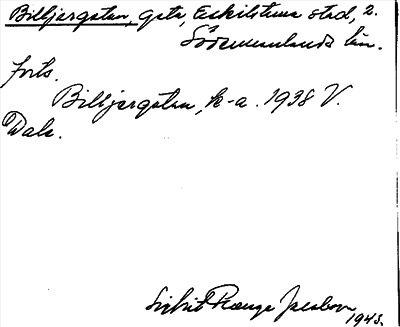 Billjergatan, gata, Eskilstuna stad, 2.
Södermanlands län.
forts.
Billjergatan, k-a. 1938 V.
Dale.
Sigrid Range Jacobson
1943.